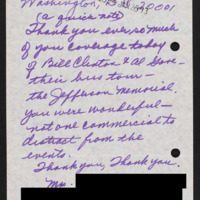 Washington, 20001
(a quick note)
Thank you ever so much
of you coverage today
of Bill Clinton & Al Gore -
their bus tour -
the Jefferson Memorial.
You were wonderful -
not one commercial to
distract from the
events.
Thank you, Thank you.
Ms.